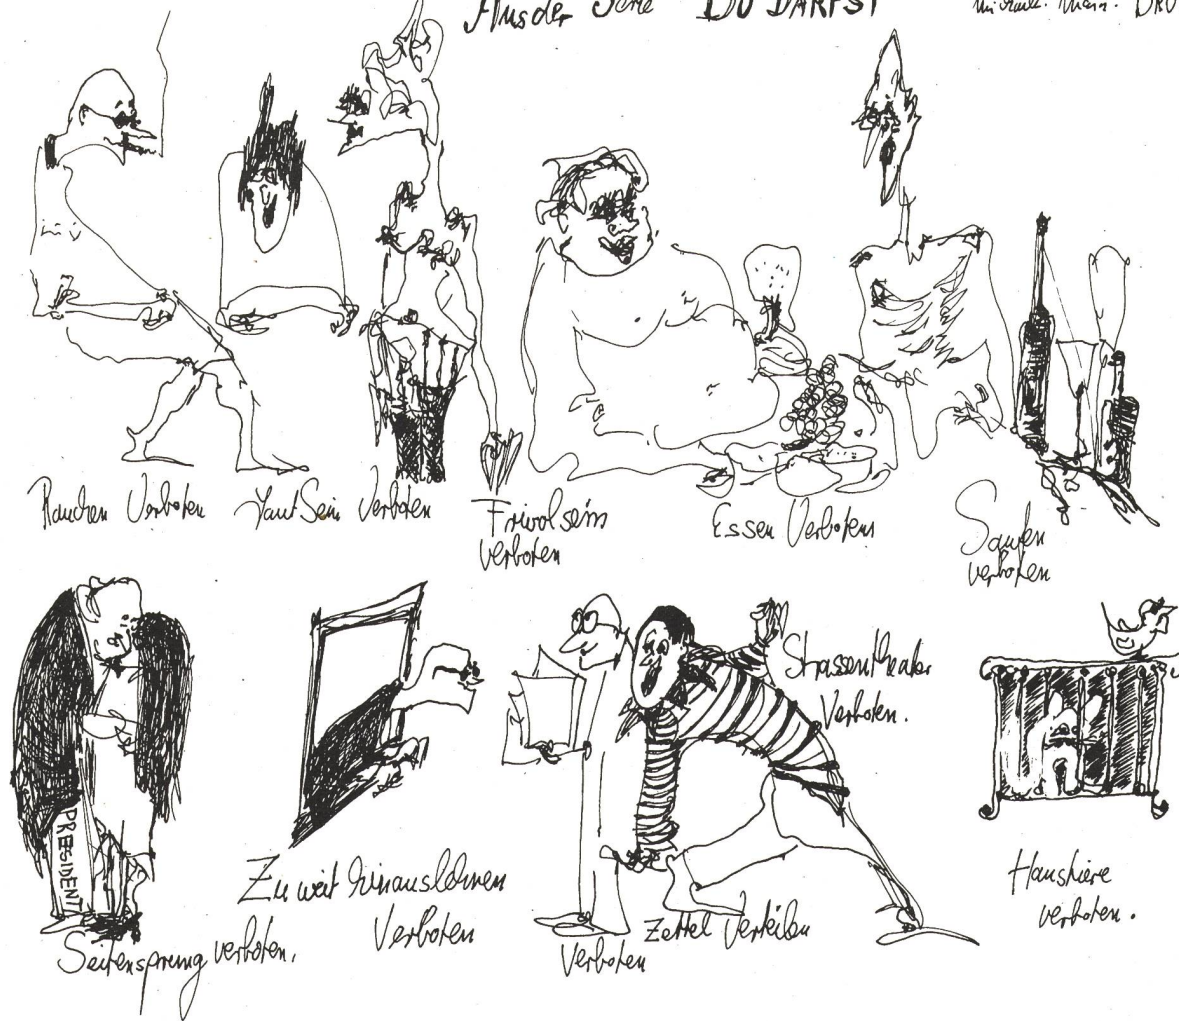 Aus der Serie DU DARFST
Rauchen Verboten
Laut Sein Verboten
Frivol sein
verboten
Essen Verboten
Saufen
verboten
PRÆSIDENT
Seitensprung verboten.
Zu weit hinauslehnen
Verboten
Zettel Verteilen
Verboten
Strassentheater
Verboten.
Haustiere
verboten.